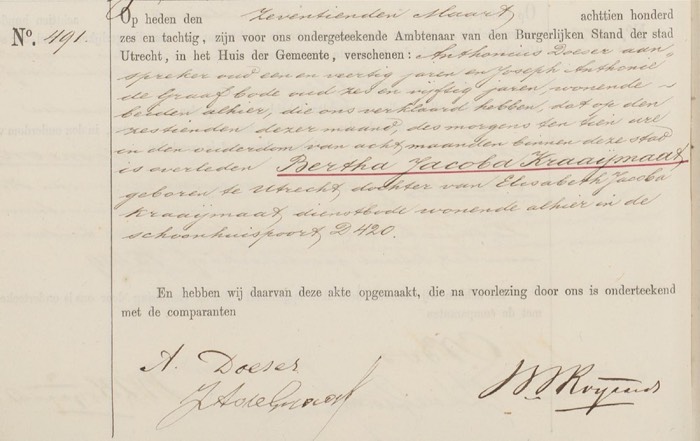 Nº. 491.
Op heden den zeventienden Maart achttien honderd
zes en tachtig, zijn voor ons ondergeteekende Ambtenaar van den Burgerlijken Stand der stad
Utrecht, in het Huis der Gemeente, verschenen: Anthonius Doeser aan-
spreker oud een en veertig jaren en Joseph Anthonie
de Graaf bode oud zes en vijftig jaren, wonende
beiden alhier, die ons verklaard hebben, dat op den
zestienden dezer maand, des morgens ten tien ure
in den ouderdom van acht maanden binnen deze stad
is overleden Bertha Jacoba Kraaijmaat,
geboren te Utrecht, dochter van Elisabeth Jacoba
Kraaijmaat, dienstbode wonende alhier in de
schoonhuispoort, D 420.
En hebben wij daarvan deze akte opgemaakt, die na voorlezing door ons is onderteekend
met de comparanten
A. Doeser
JA de Graaf